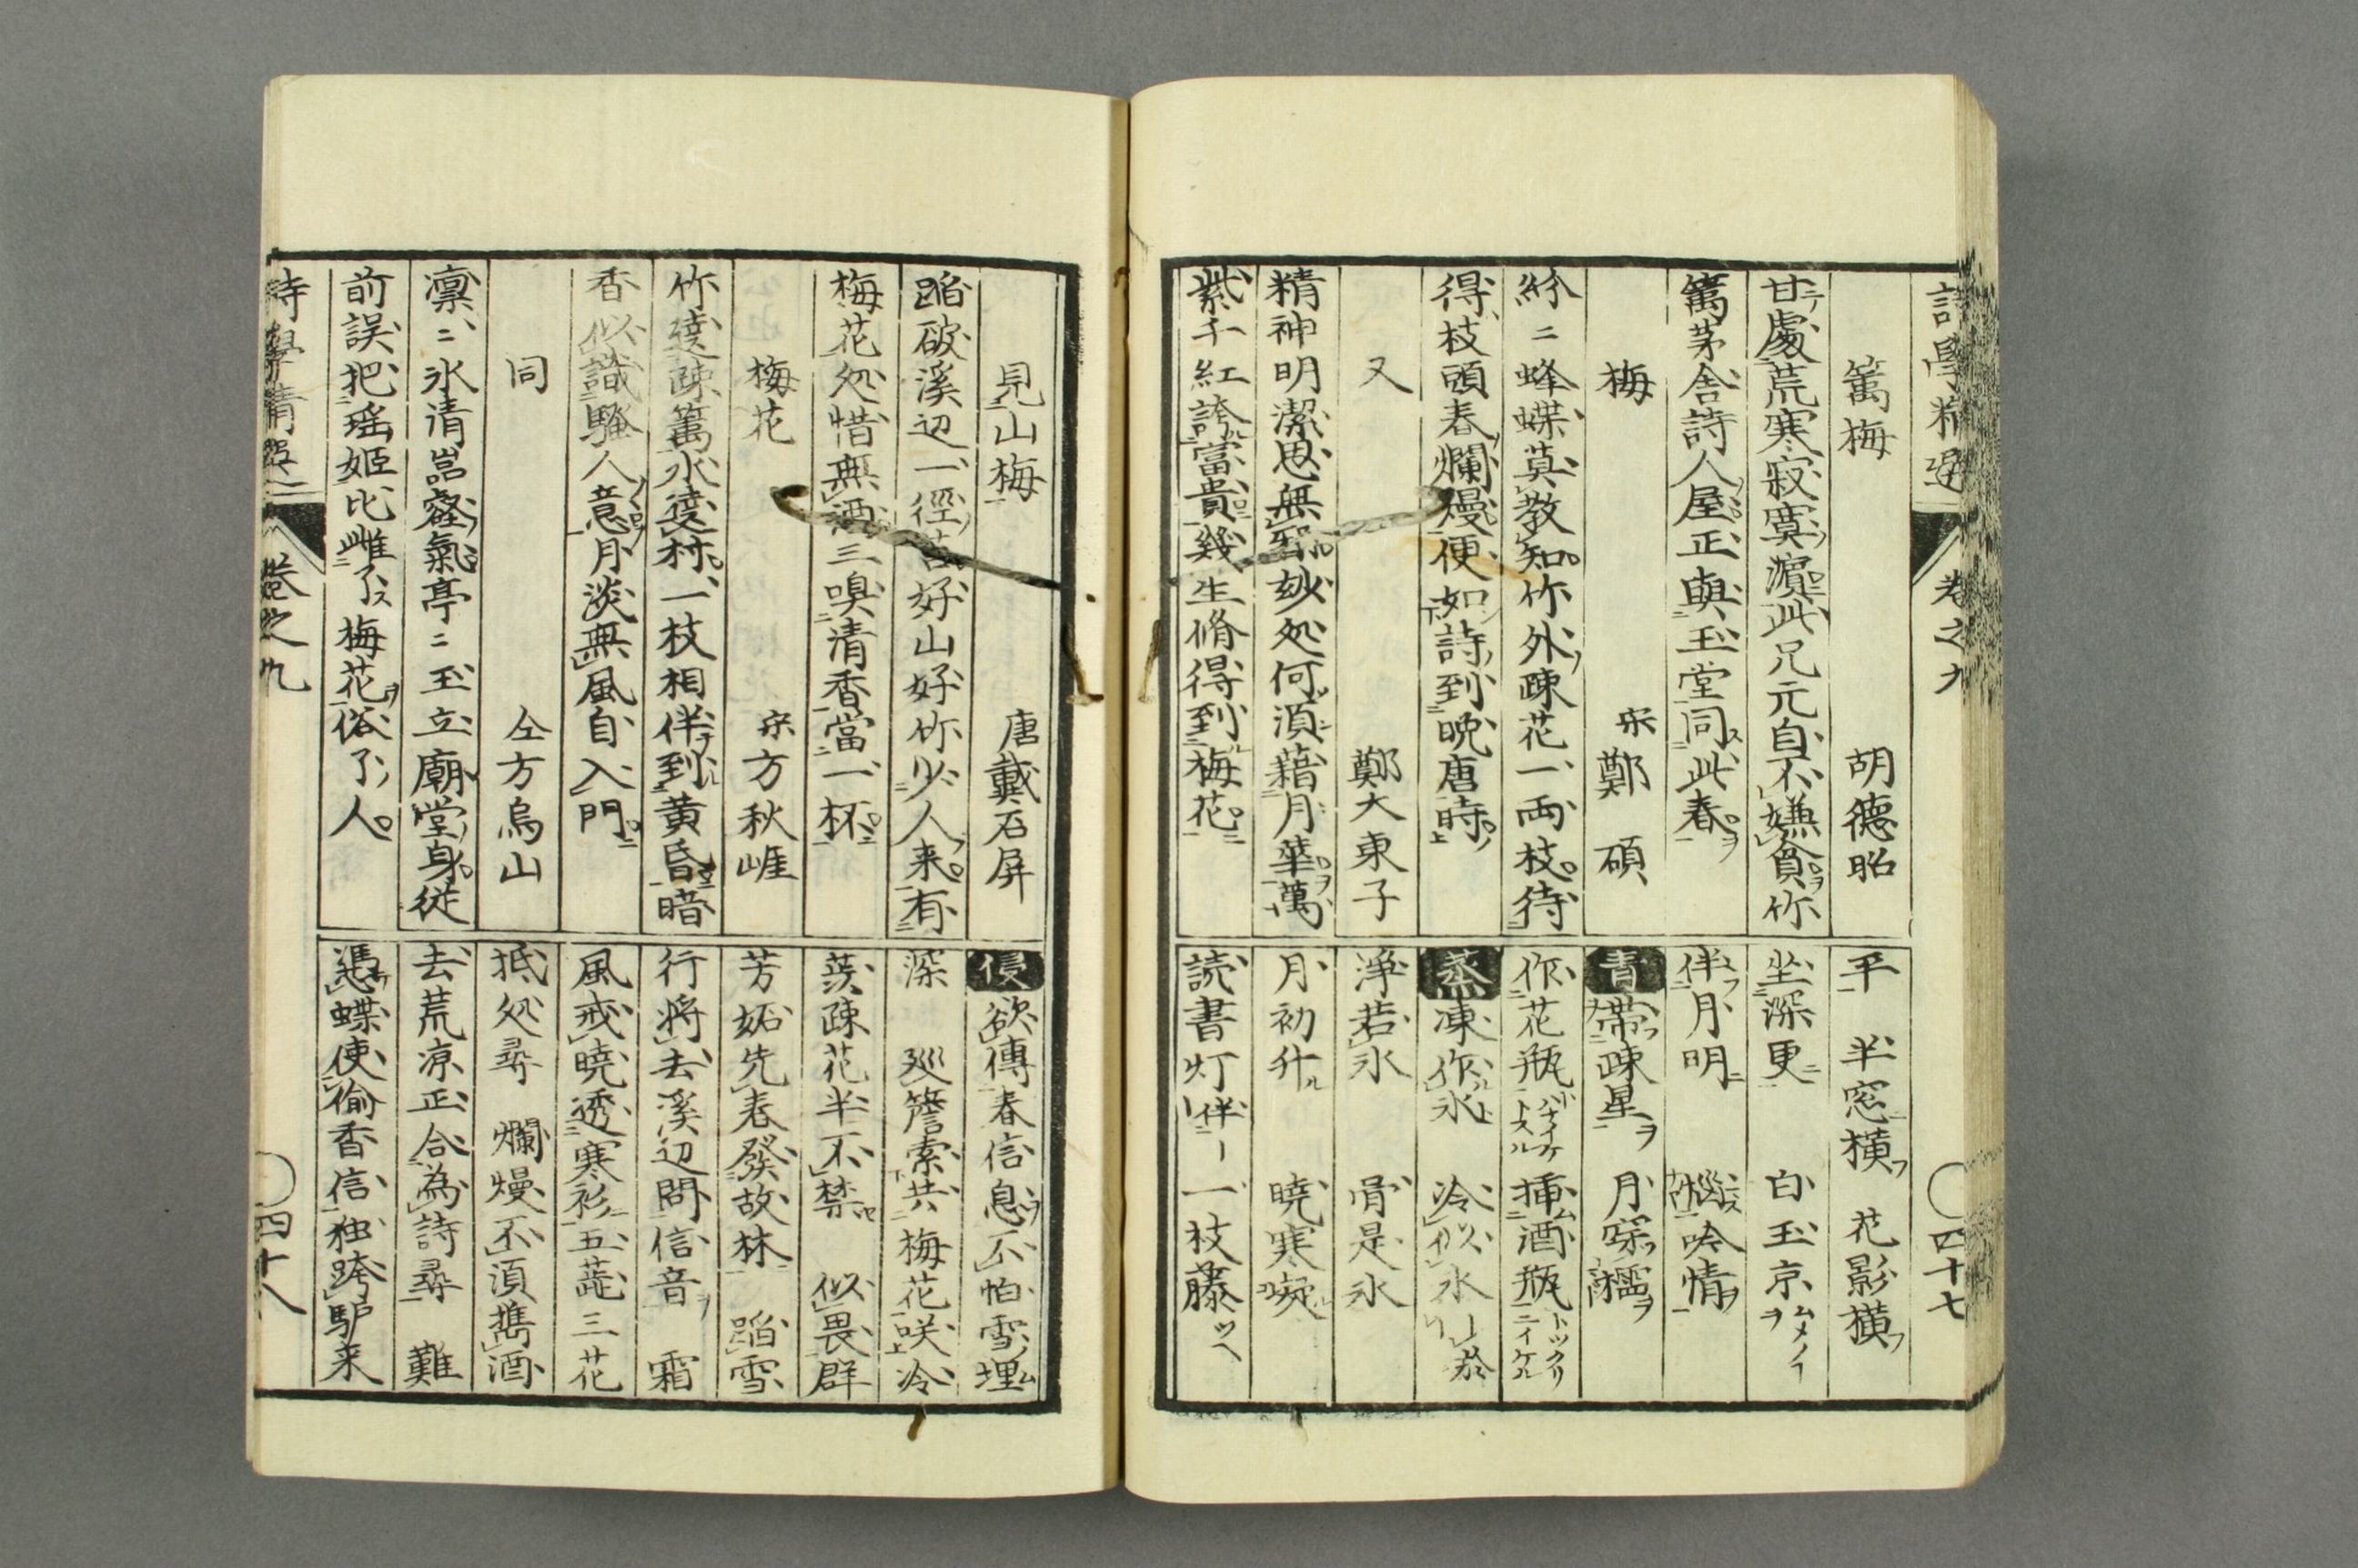 詩學精選 卷之九 〇四十七
篱梅 胡德昭
甘處荒寒寂寞濵此兄元自不嫌貧竹
篱茅舎詩人屋正與玉堂同此春
梅 宋 鄭碩
紛〻蜂蝶莫教知竹外疎花一両枝待
得枝頭春爛熳便如詩到晩唐時
又 鄭大東子
精神明潔思無邪玅処何須藉月華萬
紫千紅誇冨貴幾生脩得到梅花
平 半窓橫 花影橫
坐深更 白玉京
伴月明 惱吟情
青 帯疎星 月穿櫺
作花瓶 挿酒瓶
蒸 凍作氷 冷似氷
淨若氷 骨是氷
月初升 曉寒凝
読書灯伴 一枝藤
見山梅 唐戴石屏
蹈破溪辺一径苔好山好竹少人来有
梅花処惜無酒三嗅清香當一杯
梅花 宋方秋崕
竹邉疎篱水邉村一枝相伴到黄昏暗
香似識騷人意月淡無風自入門
同 仝方烏山
凛〻氷清岩壑氣亭〻玉立廟堂身從
前誤把瑶姫比雌了梅花俗了人
侵 欲傳春信息不怕雪埋
深 巡簷索共梅花咲冷
蕊疎花半不禁 似畏群
芳妬先春發故林 蹈雪
行將去溪辺問信音 霜
風戒曉透寒衫五蕋三花
抵処尋 爛熳不須携酒
去荒凉正合為詩尋 難
憑蝶使偷香信独跨馿来
詩學精選 卷之九 〇四十八